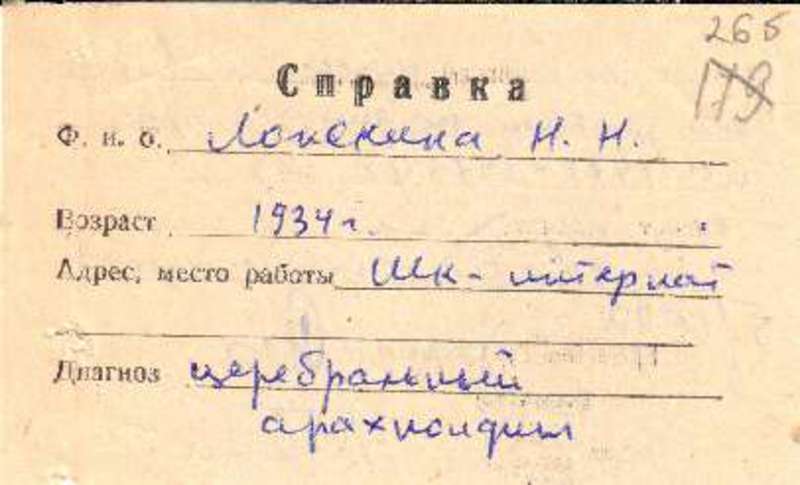 265
179
Справка
Ф. и. о. Лопекина Н. Н.
Возраст 1934 г.
Адрес, место работы Шк-интернат
Диагноз церебральный
арахноидит